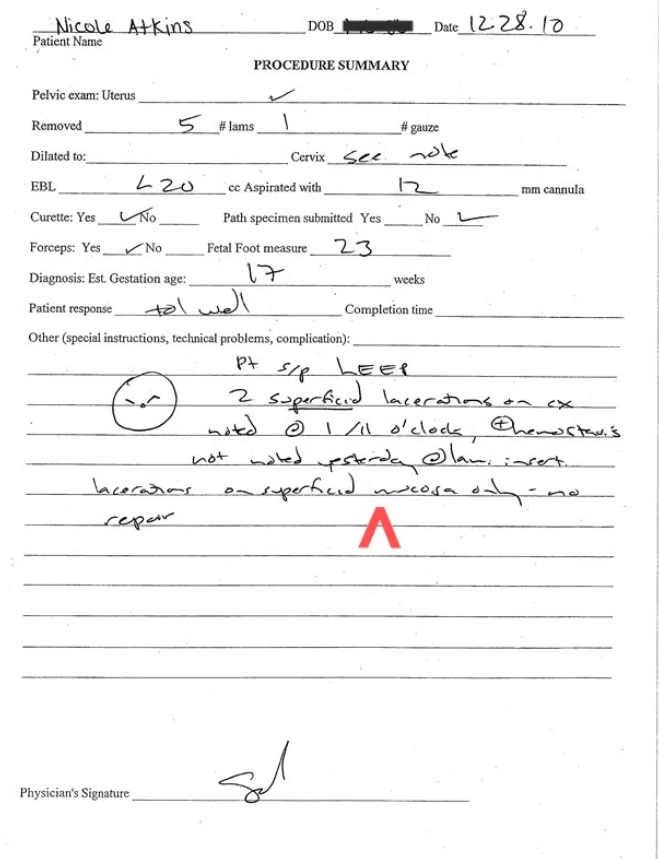 Nicole Atkins DOB Date 12.28.10
Patient Name
PROCEDURE SUMMARY
Pelvic exam: Uterus ✓
Removed 5 # lams 1 # gauze
Dilated to: Cervix see note
EBL <20 cc Aspirated with 12 mm cannula
Curette: Yes ✓ No Path specimen submitted Yes No ✓
Forceps: Yes ✓ No Fetal Foot measure 23
Diagnosis: Est. Gestation age: 17 weeks
Patient response tol well Completion time
Other (special instructions, technical problems, complication):
Pt s/p LEEP
2 superficial lacerations on cx
noted @ 1/11 o'clock, ⊕hemostasis
not noted yesterday @ lam. insert.
lacerations on superficial mucosa only - no
repair
Physician's Signature